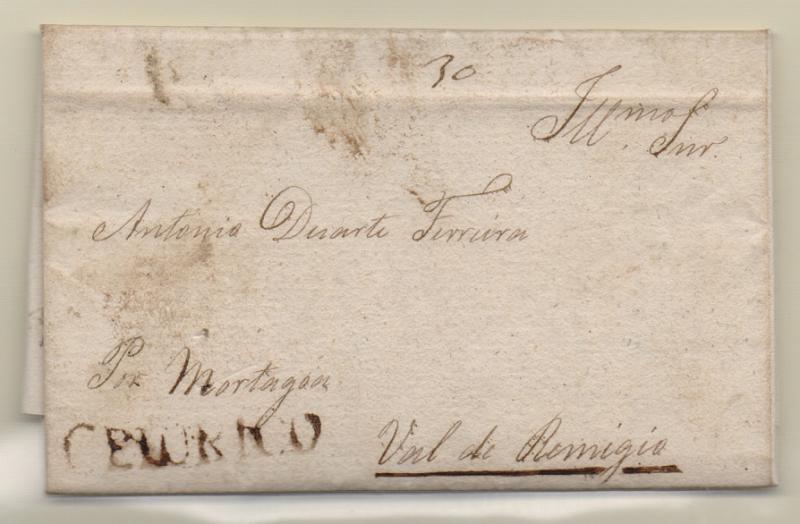 30
Illmo. Snr.
Antonio Duarte Ferreira
Por Mortagoa
CELURICO
Val de Remigio